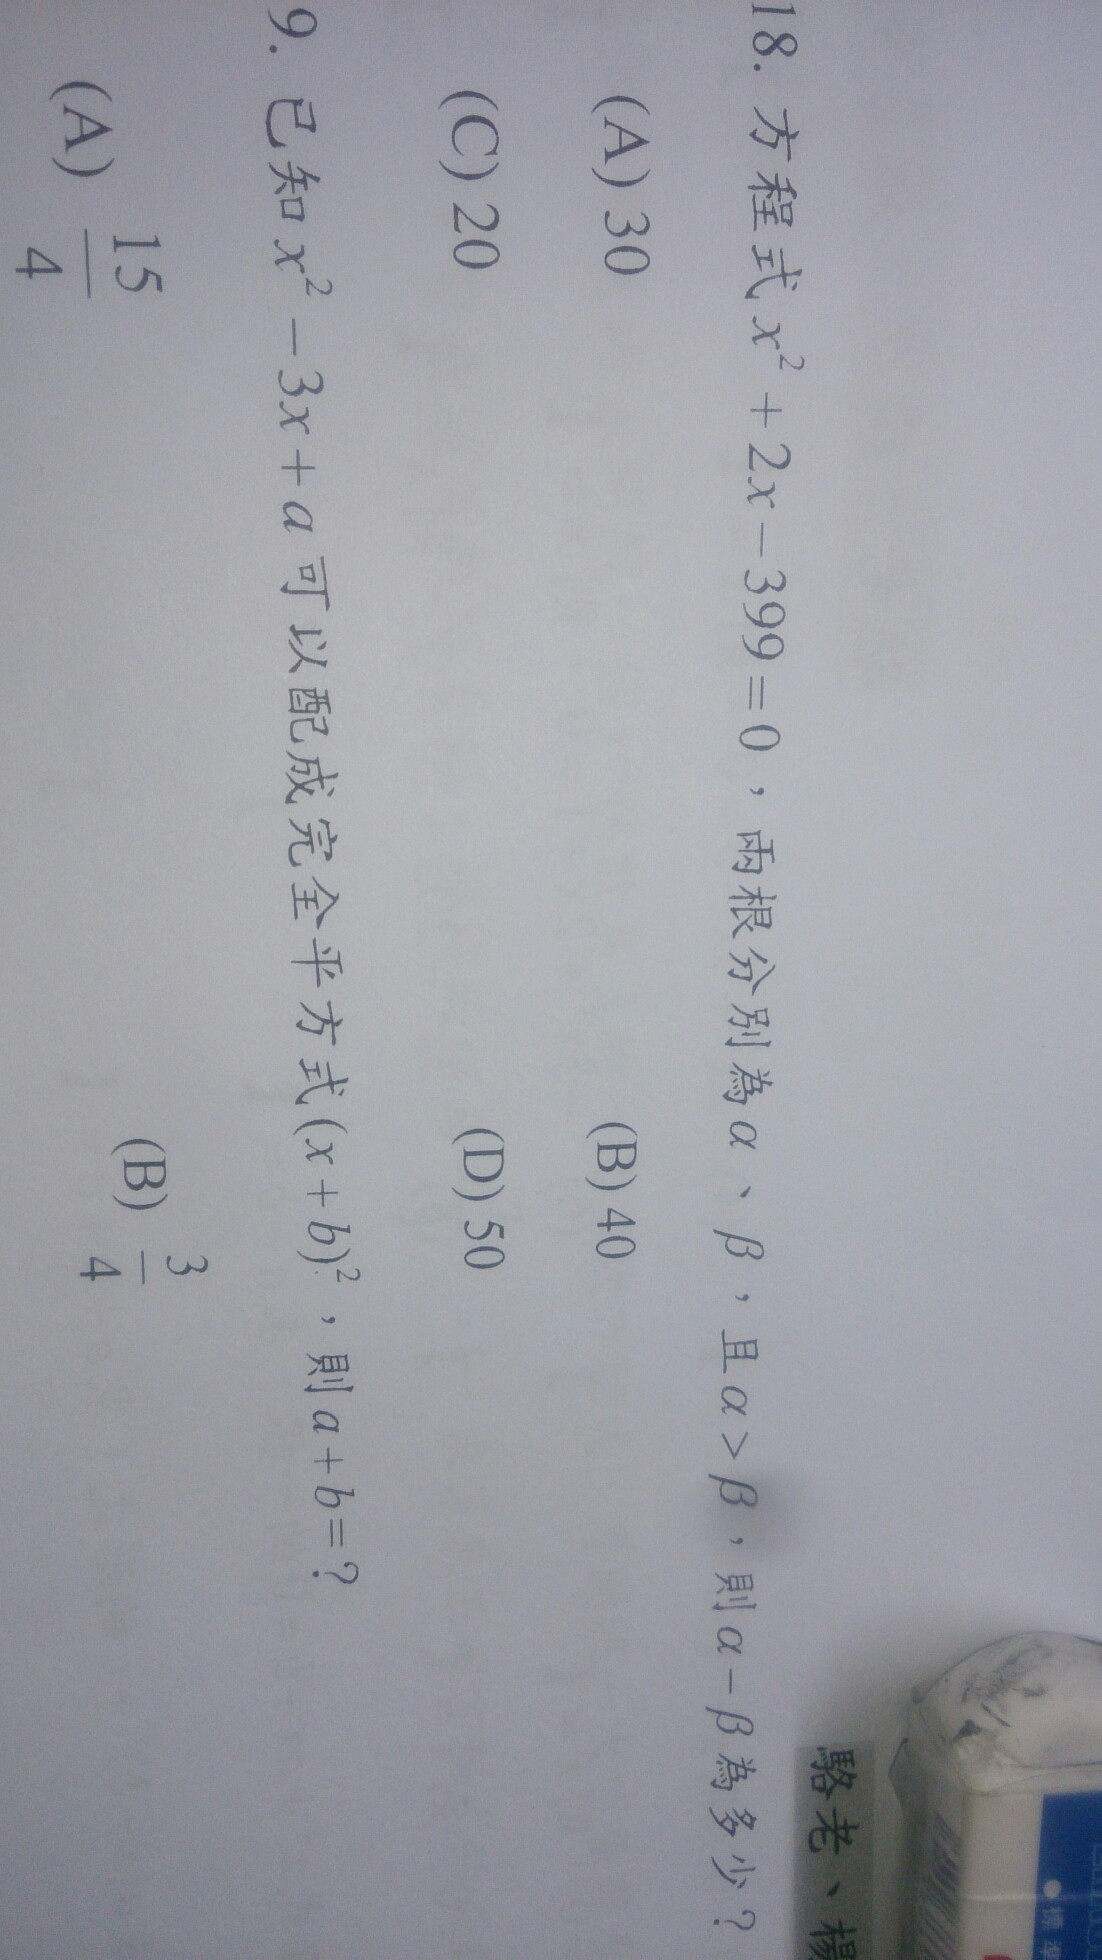 18. 方程式x²+2x-399=0，兩根分別為α、β，且α>β，則α-β為多少？
(A) 30 (B) 40
(C) 20 (D) 50
9. 已知x²-3x+a可以配成完全平方式(x+b)²，則a+b=？
(A) 15/4 (B) 3/4
駱老、楊
標準